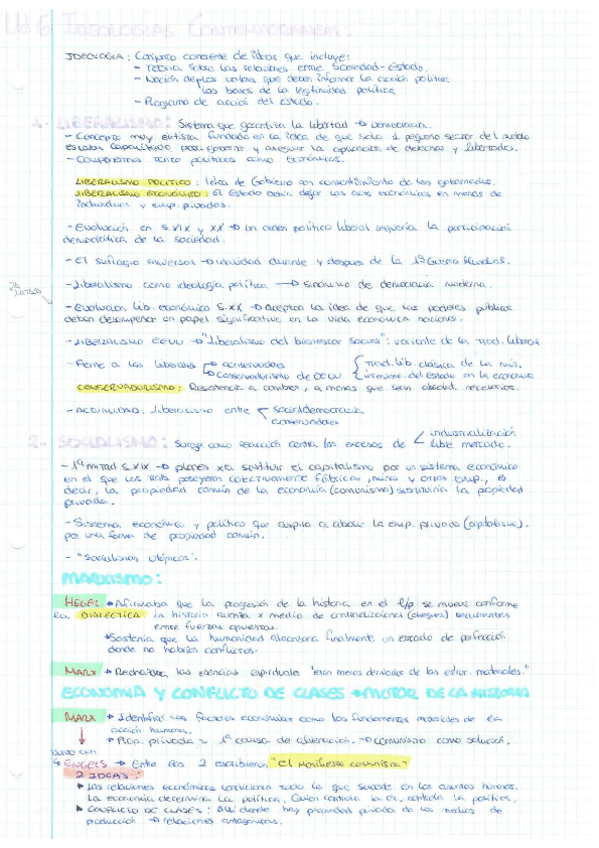 IDEOLOGÍAS CONTEMPORÁNEAS:
IDEOLOGÍA: Conjunto coherente de ideas que incluye:
- Teoría sobre las relaciones entre Sociedad-Estado.
- Noción de los valores que deben informar la acción política
las bases de la legitimidad política
- Programa de acción del estado.
1- LIBERALISMO: Sistema que garantiza la libertad → Democracia.
- Concepto muy elitista fundado en la idea de que solo 1 pequeño sector del pueblo
estaba capacitado para garant y asegurar la aplicación de derechos y libertades.
- Componentes tanto políticos como económicos.
LIBERALISMO POLÍTICO: Idea de Gobierno con consentimiento de los gobernados.
LIBERALISMO ECONÓMICO: El Estado debía dejar las económicas en manos de
individuos y emp. privadas.
- Evolución en S.XIX y XX → Un orden político liberal requería la participación
democrática de la sociedad.
- El sufragio universal → realidad durante y después de la 1ª Guerra Mundial.
- Liberalismo como ideología política → sinónimo de democracia moderna.
- Evolución lib. económico S.XX → Aceptan la idea de que los poderes públicos
deben desempeñar un papel significativo en la vida económica nacional.
- LIBERALISMO EEUU → "Liberalismo del bienestar social": variante de la trad. liberal
- Frente a los liberales → conservadores
→ Conservadurismo de EEUU { Trad. lib. clásica de la mín.
interven. del estado en la economía
CONSERVADURISMO: Resistencia a cambios, a menos que sean absolut. necesarios.
- ACTUALIDAD: Liberalismo entre < socialdemocracia
conservadores
2- SOCIALISMO: Surge como reacción contra los excesos de < industrialización
libre mercado.
- 1ª mitad S.XIX → planes xa sustituir el capitalismo por un sistema económico
en el que los trab. poseyeran colectivamente fábricas, minas y otras emp., es
decir, la propiedad común de la economía (comunismo) sustituiría la propiedad
privada.
- Sistema económico y político que aspira a abolir la emp. privada (capitalismo).
por una forma de propiedad común.
- "Socialistas utópicos".
MARXISMO:
HEGEL → Afirmaba que la progresión de la historia, en el l/p se mueve conforme
la DIALÉCTICA. La historia avanza x medio de contradicciones (choques)
entre fuerzas opuestas.
→ Sostenía que la humanidad alcanzaría finalmente un estado de perfección
donde no habrían conflictos.
MARX → Rechazaba las esencias espirituales "eran meros derivados de las estruc. materiales."
ECONOMÍA Y CONFLICTO DE CLASES → MOTOR DE LA HISTORIA
MARX → Identificar los factores económicos como los fundamentos materiales de la
acción humana.
→ Prop. privada = 1ª causa de alienación. → Comunismo como solución.
junto con
ENGELS → Entre los 2 escribieron "El Manifiesto comunista"
2 IDEAS:
▸ Las relaciones económicas condicionan todo lo que sucede en los asuntos humanos.
La economía determina la política. Quien controla la ec, controla la política.
▸ CONFLICTO DE CLASES: Allí donde hay propiedad privada de los medios de
producción → relaciones antagónicas.